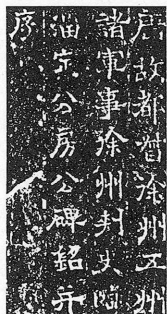 唐故都督徐州五州
諸軍事徐州刺史臨
淄定公房公碑銘并
序